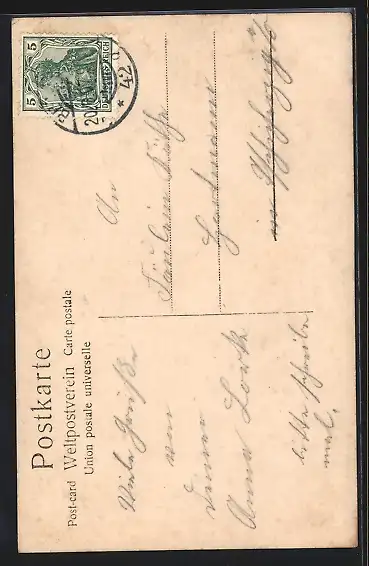 Postkarte
Post-card Weltpostverein Carte postale
Union postale universelle
5 DEUTSCHES REICH 5
* 42
An
Fräulein Käthe
in
Viele Grüße
von
Deiner
Anna
bitte schreibe
mal.